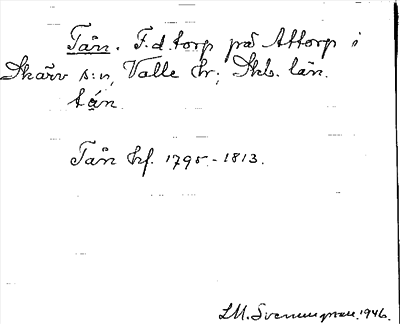 Tån. F.d. torp på Attorp i
Skärv s:n, Valle hr; Skb. län.
tán.
Tån hf. 1795-1813.
1946.